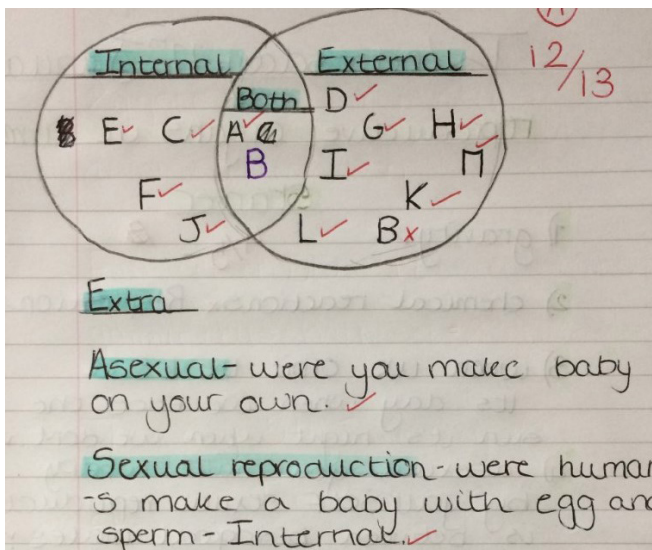 Internal External
12/13
Both D
E C A G H
B I M
F K
J L B
Extra
Asexual- were you make baby
on your own.
Sexual reproduction- were human
-s make a baby with egg and
sperm - Internal.